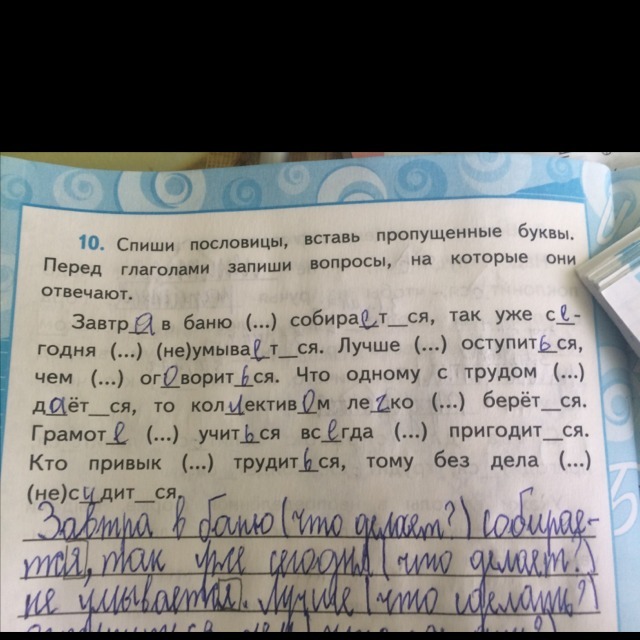 10. Спиши пословицы, вставь пропущенные буквы.
Перед глаголами запиши вопросы, на которые они
отвечают.
Завтра в баню (...) собирает__ся, так уже се-
годня (...) (не)умывает__ся. Лучше (...) оступиться,
чем (...) оговориться. Что одному с трудом (...)
даёт__ся, то коллективом легко (...) берёт__ся.
Грамоте (...) учиться всегда (...) пригодит__ся.
Кто привык (...) трудиться, тому без дела (...)
(не)сидит__ся.
Завтра в баню (что делает?) собирае-
тся, так уже сегодня (что делает?)
не умывается. Лучше (что сделать?)